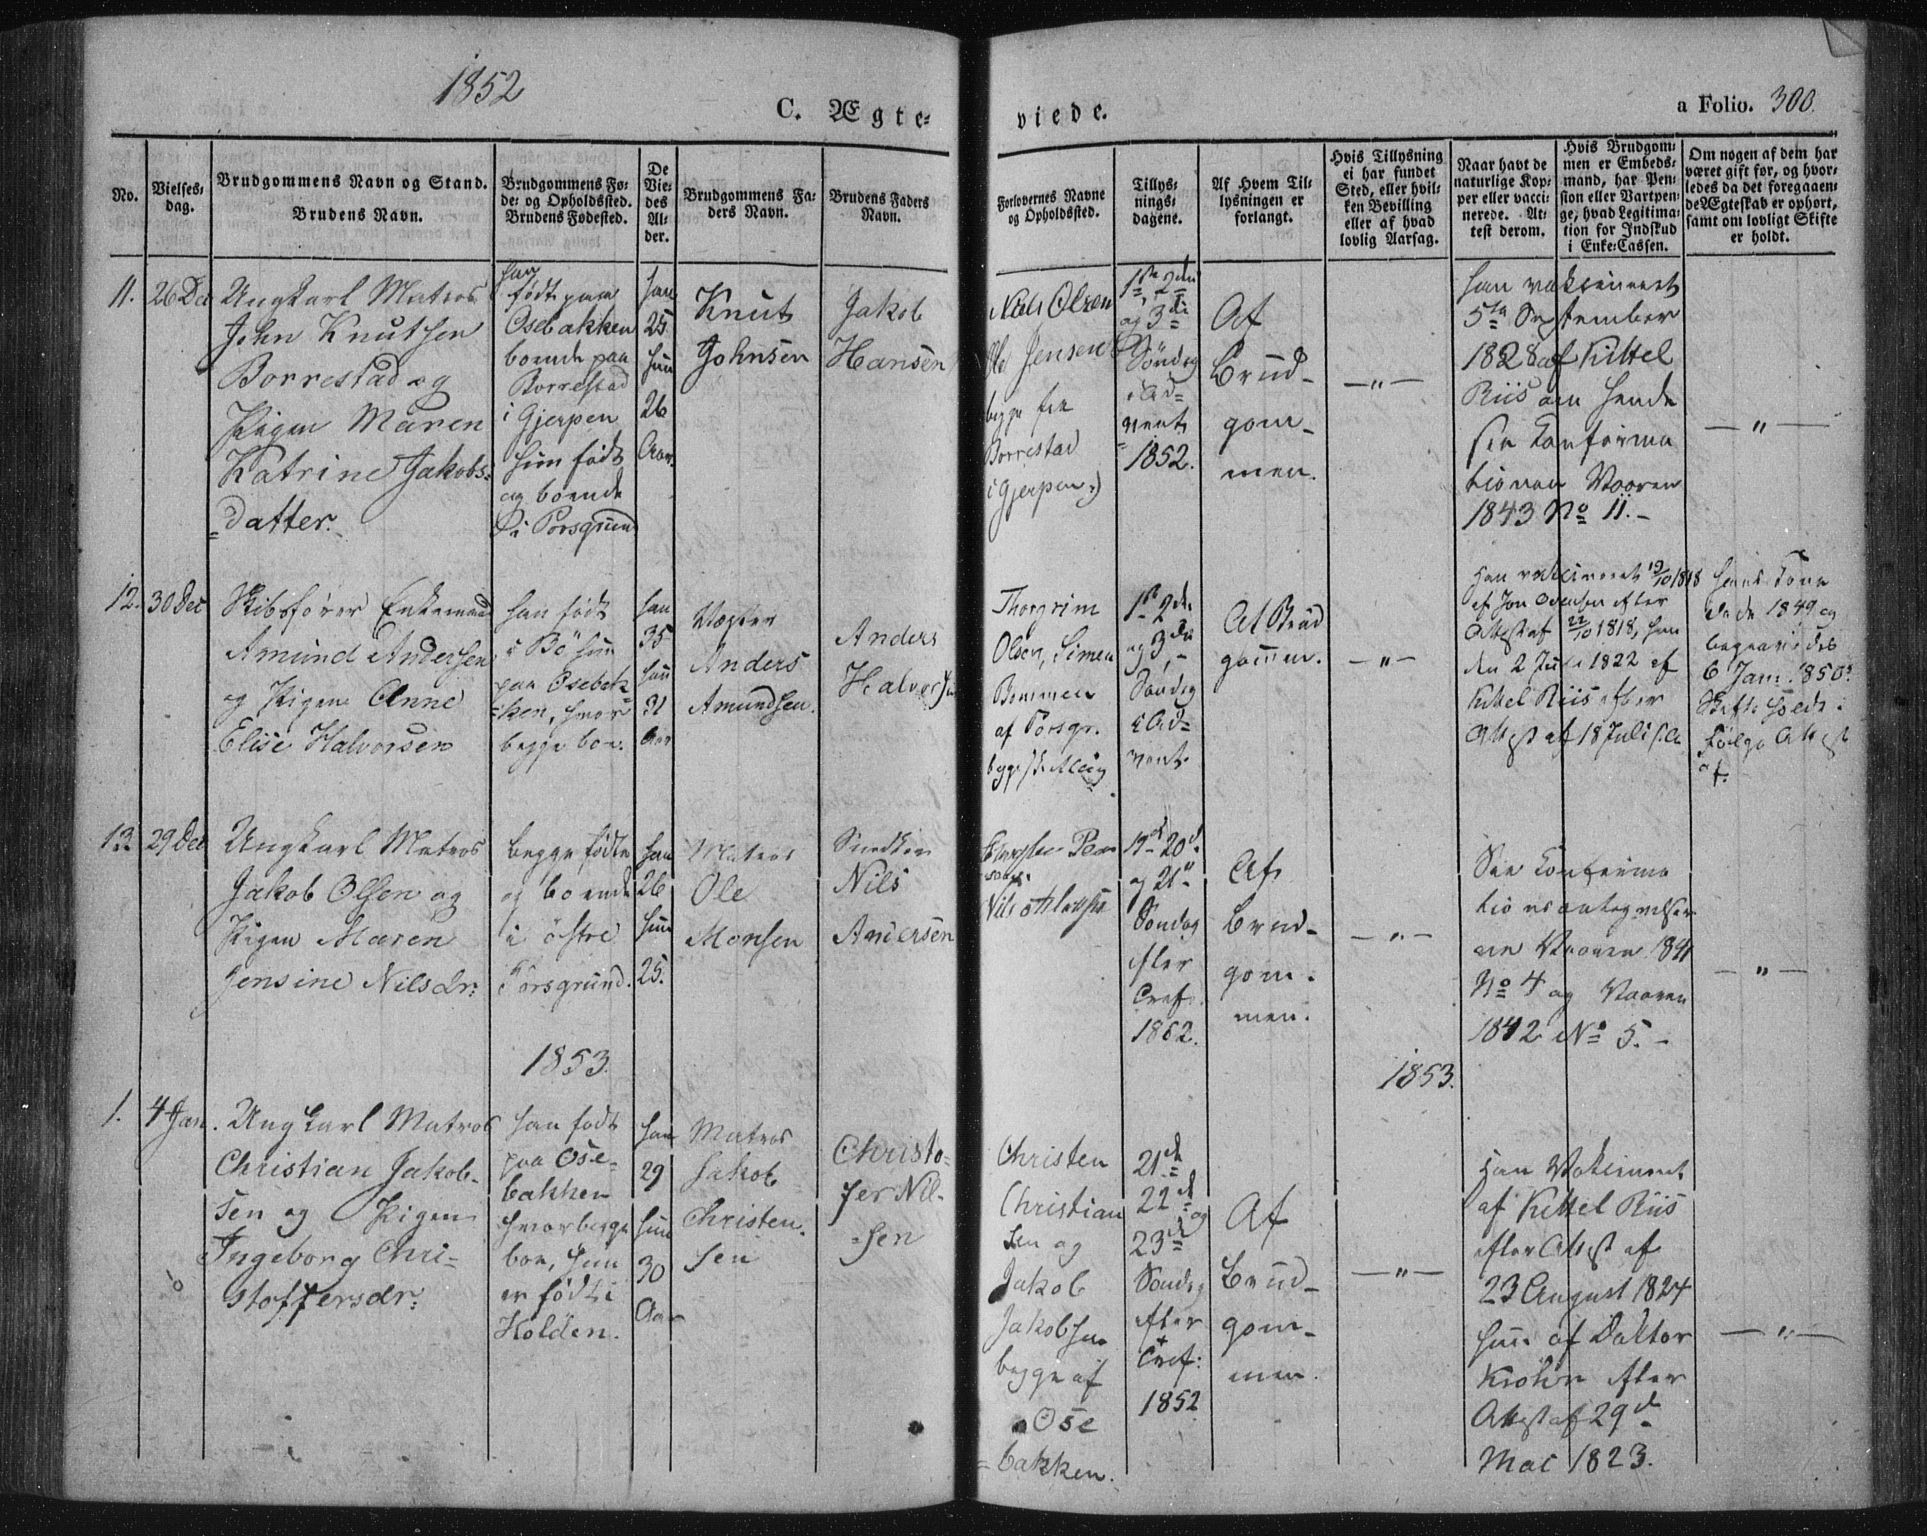 1852
C. Ægte-
viede.
a Folio. 300.
No.
Vielses-
dag.
Brudgommens Navn og Stand.
Brudens Navn.
Brudgommens Fø-
de- og Opholdssted.
Brudens Fødested.
De
Vie-
des
Al-
der.
Brudgommens Fa-
ders Navn.
Brudens Faders
Navn.
Forlovernes Navne
og Opholdssted.
Tillys-
nings-
dagene.
Af Hvem Til-
lysningen er
forlangt.
Hvis Tillysning
ei har fundet
Sted, eller hvil-
ken Bevilling
eller af hvad
lovlig Aarsag.
Naar havt de
naturlige Kop-
per eller vacci-
nerede. At-
test derom.
Hvis Brudgom-
men er Embeds-
mand, har Pen-
sion eller Vartpen-
ge, hvad Legitima-
tion for Indskud
i Enke-Cassen.
Om nogen af dem har
været gift før, og hvor-
ledes da det foregaaen-
de Ægteskab er ophørt,
samt om lovligt Skifte
er holdt.
11.
26 Dec
Ungkarl Matros
John Knutsen
Borrestad og
Pigen Maren
Katrine Jakobs-
datter.
han
født paa
Osebakken
boende paa
Borrestad
i Gjerpen
hun født
og boende
i Porsgrund
han
25
hun
26
Aar.
Knut
Johnsen
Jakob
Hansen
Niels Olsen
Ole Jensen
begge fra
Borrestad
i Gjerpen
1ste 2den
og 3die
Søndag
i Ad-
vent
1852.
Af
Brud-
gom-
men.
—"—
han vaksineert
5te September
1828 af Kittel
Riis om hende
see Konfirma
tionen Vaaren
1843 No 11.-
—"—
12.
30 Dec
Skibsfører Enkemand
Amund Andersen
og Pigen Anne
Elise Halvorsen
han født
i Bø hun
paa Osebak-
ken, hvor
begge boe.
han
35
hun
31
Aar
Anders
Amundsen.
Anders
Halvorsen
Thorgrim
Olsen, Simen
af Porsgr.
1ste 2den
og 3die
Søndag
i Ad-
vent.
Af Brud
gommen.
—"—
Han vakcineret 19/10 1818
af Jon Ovensen efter
Attest af 22/10 1818, hun
den 2 Juli 1822 af
Kittel Riis efter
Attest af 18 Juli s.A.
hans Kone
døde 1849 og
begravedes
6 Jan. 1850.
Skifte holdt i
følge Attest
af.
13.
29 Dec
Ungkarl Matros
Jakob Olsen og
Pigen Maren
Jensine Nilsdr:
begge fødte
og boende
i østre
Porsgrund.
han
26
hun
25.
Matros
Ole
Monsen
Nils
Andersen
19de 20de
og 21de
Søndag
efter
Tref.
1852.
Af
Brud-
gom-
men.
—"—
See Konfirma
tionsantegnelser
ne Vaaren 1841
No 4 og Vaaren
1842 No 5.-
—"—
1853.
1853.
1.
4 Jan.
Ungkarl Matros
Christian Jakob-
sen og Pigen
Ingeborg Chri-
stoffersdr:
han født
paa Ose-
bakken
hvor begge
boe, hun
er født i
Holden.
han
29
hun
30
Aar
Matros
Jakob
Christen-
sen
Christo-
fer Nil-
sen
Christen
Christian
sen og
Jakob
Jakobsen
begge af
Ose
bakken.
21de
22de og
23de
Søndag
efter
Tref:
1852
Af
Brud-
gom-
men.
—"—
Han Vakcineret
af Kittel Riis
efter Attest af
23 August 1824
hun af Doktor
Krohn efter
Attest af 29de
Mai 1823.
—"—